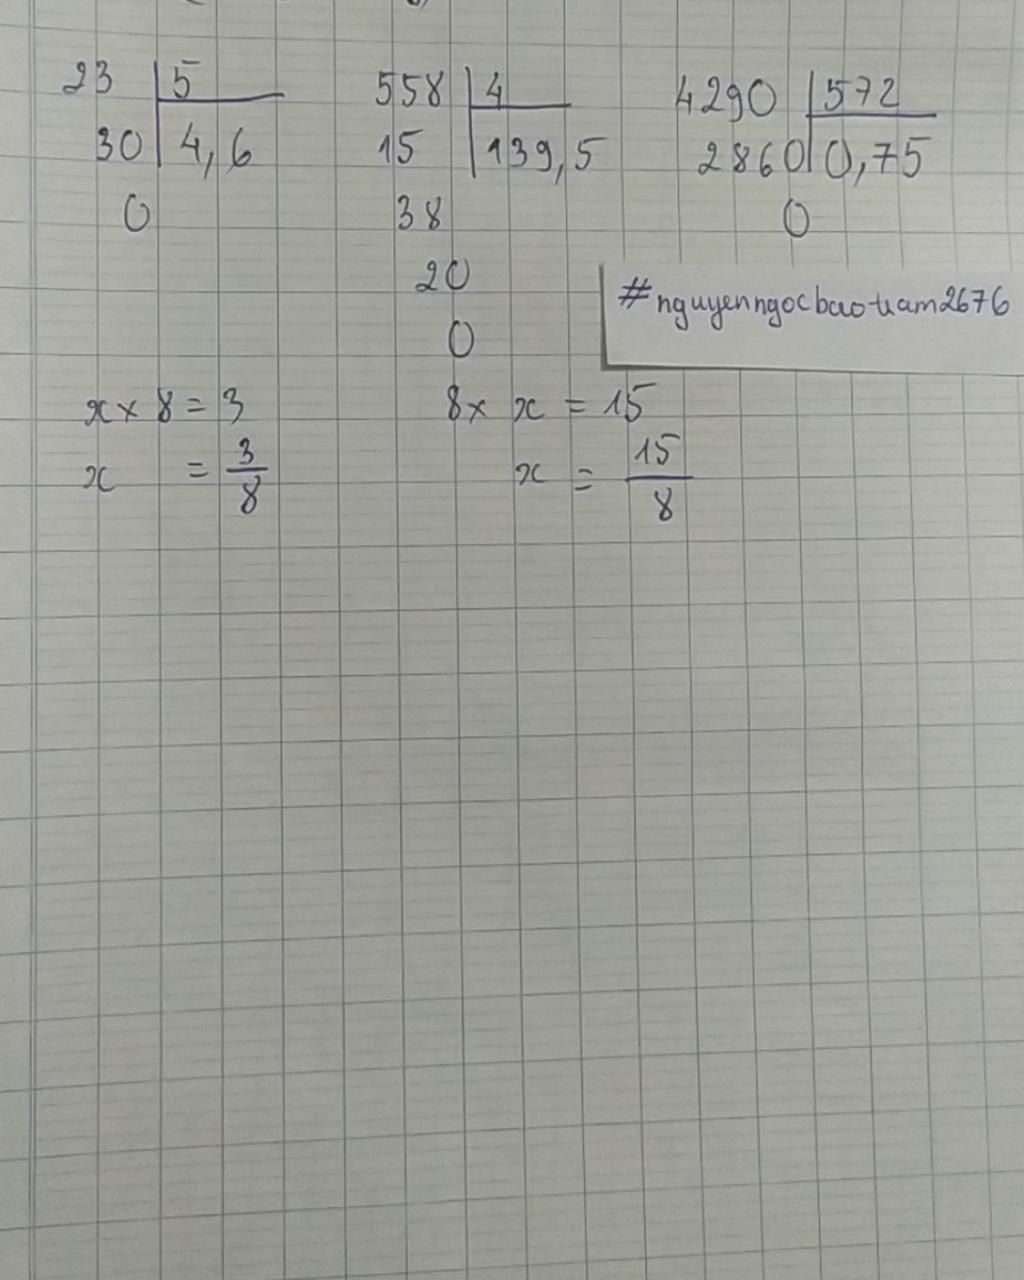 23 5
30 4,6
0
558 4
15 139,5
38
20
0
4290 572
2860 0,75
0
#nguyenngocbaotram2676
x × 8 = 3
x = 3/8
8 × x = 15
x = 15/8